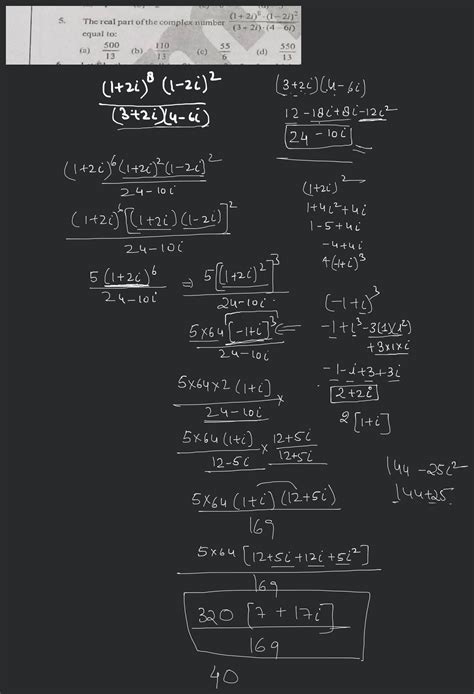 5. The real part of the complex number (1+2i)^8·(1−2i)^2 / (3+2i)·(4−6i)
equal to:
(a) 500/13 (b) 110/13 (c) 55/6 (d) 550/13
(1+2i)^8 (1-2i)^2 / (3+2i)(4-6i)
(1+2i)^6 (1+2i)^2 (1-2i)^2 / 24-10i
(1+2i)^6 [(1+2i)(1-2i)]^2 / 24-10i
5(1+2i)^6 / 24-10i ⇒ 5[(1+2i)^2]^3 / 24-10i
5×64[-1+i]^3 / 24-10i
5×64×2(1+i) / 24-10i ×
5×64(1+i) / 12-5i × 12+5i / 12+5i
5×64(1+i)(12+5i) / 169
5×64[12+5i+12i+5i^2] / 169
320[7+17i] / 169
40
(3+2i)(4-6i)
12-18i+8i-12i^2
24-10i
(1+2i)^2
1+4i^2+4i
1-5+4i
-4+4i
4(-1+i)^3
(-1+i)^3
-1+i^3-3(1)(i^2)
+3×1×i
-1-i+3+3i
2+2i
2[1+i]
144-25i^2
144+25